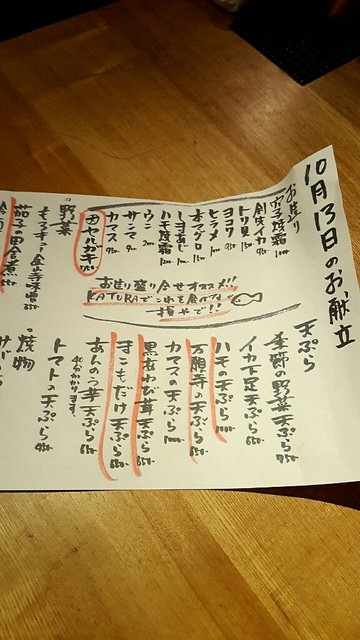 10月13日のお献立
お造り
穴子焼霜
剣先イカ
トリ貝
ヨコワ
ヒラメ
本マグロ
しまあじ
ハモ焼霜
ウニ
サンマ
カマス
岩ガキ
お造り盛り合せオススメ!!
KATURAでこれを食べな
損やで!!
野菜
もろキュー金山寺味噌
茄子の田舎煮
天ぷら
季節の野菜天ぷら 750-
イカ下足天ぷら 650-
ハモの天ぷら 1000-
万願寺の天ぷら 650-
カマスの天ぷら 1000-
黒あわび茸天ぷら 850-
まこもだけ天ぷら 650-
あんのう芋天ぷら 650-
40分かかります。
トマトの天ぷら
焼物